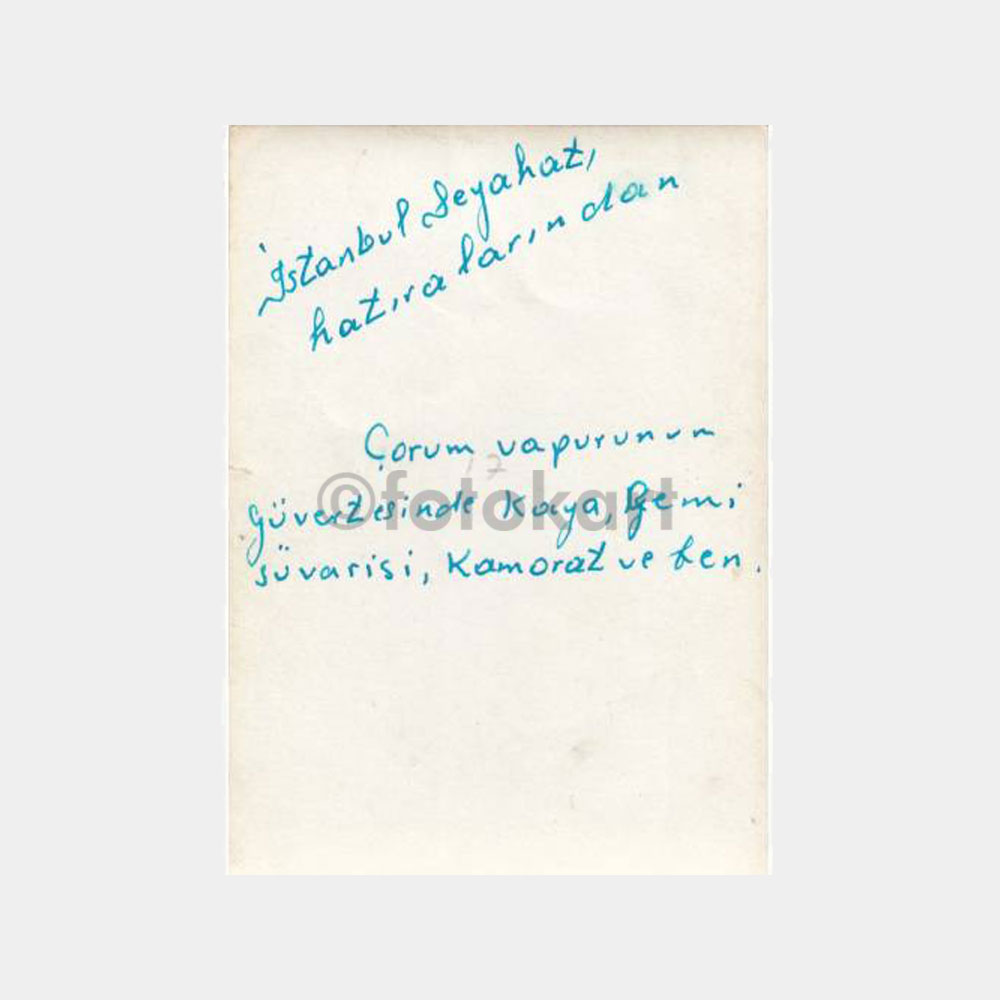 İstanbul Seyahatı
hatıralarından
Çorum vapurunun
17
©fotokart
güvertesinde Kaya, Gemi
süvarisi, Kamorat ve ben.